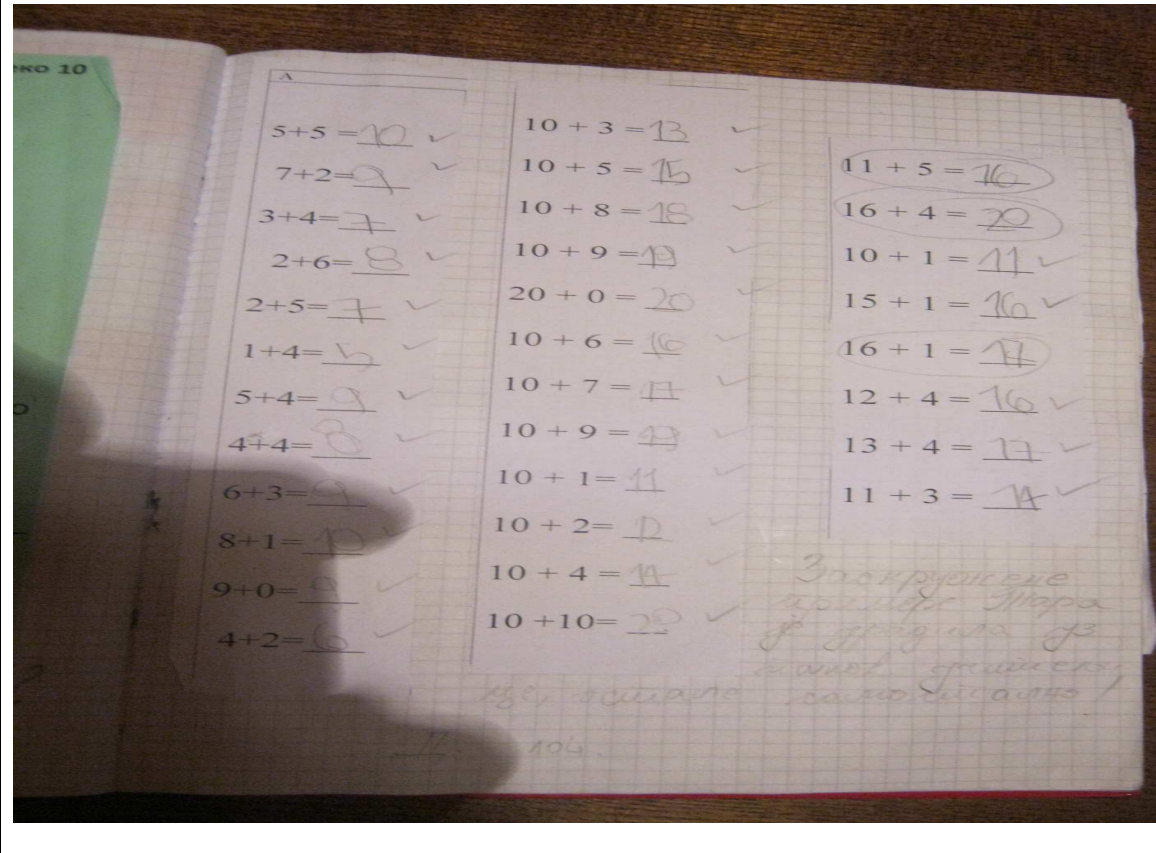 ко 10
А
5+5 =10 ✓
7+2=9 ✓
3+4=7 ✓
2+6=8 ✓
2+5=7 ✓
1+4=5 ✓
5+4=9 ✓
4+4=8 ✓
6+3=9 ✓
8+1=10 ✓
9+0=9 ✓
4+2=6 ✓
10 + 3 =13 ✓
10 + 5 =15 ✓
10 + 8 =18 ✓
10 + 9 =19 ✓
20 + 0 = 20 ✓
10 + 6 =16 ✓
10 + 7 =17 ✓
10 + 9 =19 ✓
10 + 1= 11 ✓
10 + 2= 12 ✓
10 + 4 = 14 ✓
10 +10= 20 ✓
11 + 5 = 16
16 + 4 = 20
10 + 1 = 11 ✓
15 + 1 = 16 ✓
16 + 1 = 17
12 + 4 = 16 ✓
13 + 4 = 17 ✓
11 + 3 = 14 ✓
Заокружене
примере Тара
је урадила уз
це, остале самостално!